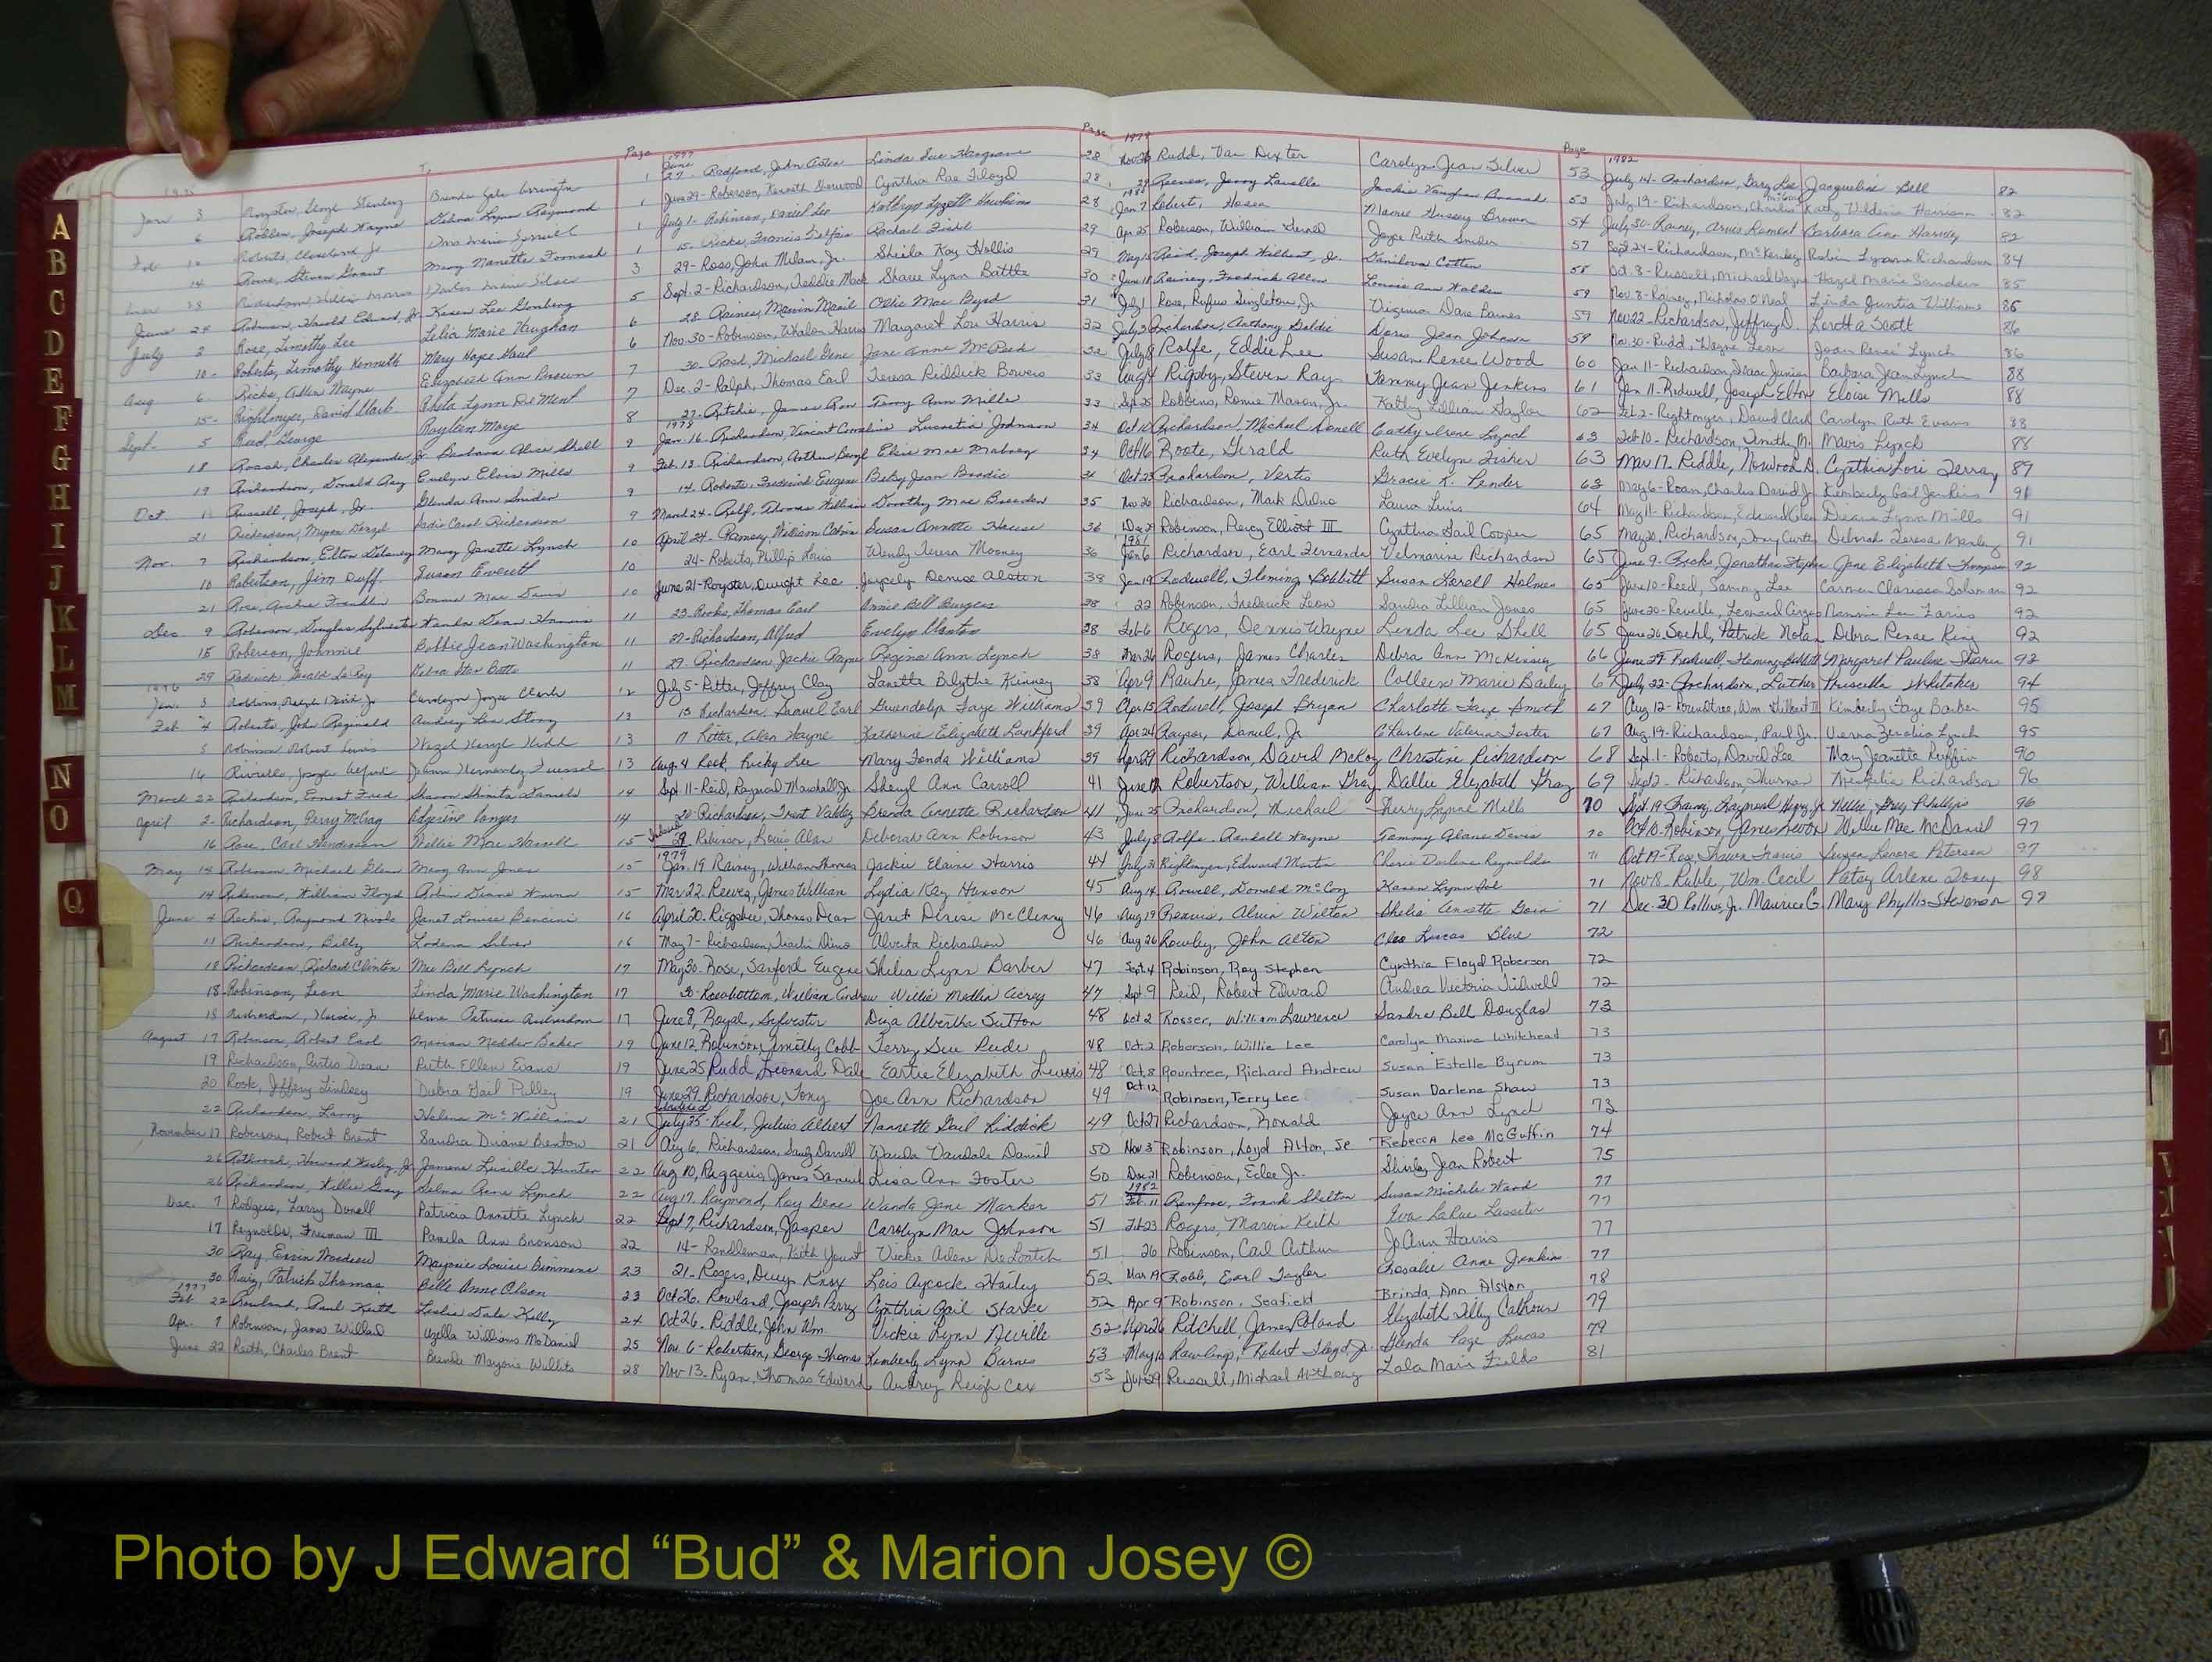 A
B
C
D
E
F
G
H
I
J
K
L
M
N
O
Q
Page
Jan 3 Royster, George Stanley Brenda Gale Arrington 1
6 Robben, Joseph Wayne Raymond 1
Feb Roberts, Cleveland Jr 1
14 Rowe, Steven Grant Mary Nanette 3
28 5
June 24 Harold Edward, Jr. Karen Lee 6
July 2 Rose, Timothy Lee Lelia Marie Vaughan 6
10 Roberts, Timothy Kenneth Mary Hope Paul 7
Aug 6 Ricks, Allen Wayne Elizabeth Ann Brown 7
15 Rightmyer, David Clark Rheta Lynn De Ment 8
Sept. 5 Reed, George Raylen Moye 9
18 Roach, Charles Alexander, Jr Barbara Alice Shell 9
19 Richardson, Donald Ray Evelyn Elois Mills 9
Oct Russell, Joseph, Jr. Glenda Ann Snider 9
21 Richardson, Myron Sadie Carol Richardson 10
Nov. 7 Richardson, Elton Delaney Mary Janette Lynch 10
10 Robertson, Jim Duff Susan Everett 10
21 Rose, Archie Franklin Bonnie Mae Davis 11
Dec 9 Roberson, Douglas Sylvester 11
15 Roberson, Johnnie Bobbie Jean Washington 11
29 12
Jan. 3 Carolyn Joyce Clark 13
Feb 4 Roberts, John Reginald Audrey Lea Strong 13
5 Robinson Robert Lewis Hazel 13
16 14
March 22 Richardson, Ernest Fred Daniels 14
April 2 Richardson, Perry McCray 15
16 Rose, Carl Henderson Willie Mae Harrell 15
May 14 Roberson Michael Glenn Mary Ann Jones 15
14 William Floyd Robin Diane 16
June 4 Raymond Janet Louise Bencini 16
11 Richardson, Billy Lodena Silver 17
18 Richardson, Richard Clinton Mae Bell Lynch 17
18 Robinson, Leon Linda Marie Washington 17
18 Richardson Jr. Patricia Richardson 19
August 17 Robinson, Robert Earl Marian Medder Baker 19
19 Richardson, Curtis Dean Ruth Ellen Evans 19
20 Rook, Jeffrey Lindsey Debra Gail Pulley 21
22 Richardson, Larry McWilliams 21
November 17 Roberson, Robert Brent Sandra Duane Benton 22
26 Rothrock, Howard Wesley, Jr Lucille Hunter 22
26 Richardson, Willie Gray Selma Lynch 22
Dec. 7 Rodgers, Larry Donell Patricia Annette Lynch 22
17 Reynolds, Freeman III Pamela Ann Bronson 23
30 Ray Ervin Marjorie Louise Cimmons 23
30 Ruiz, Patrick Thomas Belle Anne Olson 24
1977
Feb 22 Rowland, Paul Keith Leslie Dale Kelly 25
Apr. 7 Robinson, James Willard Williams McDaniel 28
June 22 Reith, Charles Brent Brenda Marjorie Willits
Page
1977
June 27 Redford, John Linda Sue Hargrove 28
June 29 Roberson, Kenneth Cynthia Rae Floyd 28
July 1 Robinson, Daniel Lee Kathryn 28
15 Ricks, Francis Rachael 29
29 Ross, John Milam, Jr. Sheila Kay Hollis 29
Sept. 2 Richardson, Teddie Mack Sharee Lynn Battle 30
28 Raines, Marvin Ollie Mae Byrd 31
Nov 30 Robinson, Whalon Harris Margaret Lou Harris 32
30 Rash, Michael Gene Jane Anne McPeek 32
Dec. 2 Ralph, Thomas Earl Teresa Riddick Bowers 33
27 Ritchie, James Ron Terry Ann Mills 33
1978
Jan. 16 Richardson, Vincent Cornelius Lucretia Johnson 34
Feb. 13 Richardson, Arthur Elsie Mae Mabrey 34
14 Roberts, Frederick Eugene Betsy Jean Brodie 34
March 24 Relf, Thomas William Dorothy Mae Bearden 35
April 24 Ramsey, William Calvin Susan Annette House 36
24 Roberts, Phillip Louis Wendy Teresa Mooney 36
June 21 Royster, Dwight Lee Jacelyn Denise Alston 38
23 Rooks, Thomas Earl Annie Bell Burgess 38
27 Richardson, Alfred Evelyn Clanton 38
29 Richardson Jackie Wayne Regina Ann Lynch 38
July 5 Ritter, Jeffrey Clay Lanette Blythe Kinney 38
13 Richardson, Samuel Earl Gwendolyn Faye Williams 39
17 Ritter, Alan Wayne Katherine Elizabeth Lankford 39
Aug. 4 Reek, Ricky Lee Mary Fonda Williams 39
Sept 11 Reid, Raymond Marshall Jr Sheryl Ann Carroll 41
20 Richardson, Trent Valdez Brenda Annette Richardson 41
29 Robinson, Louis Alan Deborah Ann Robinson 43
1979
Jan. 19 Rainey, William Thomas Jackie Elaine Harris 44
Mar 22 Reeves, James William Lydia Kay Hanson 45
April 20 Riggsbee, Thomas Dean Janet Denise McClenny 46
May 7 Richardson, Alverta Richardson 46
May 30 Rose, Sanford Eugene Shelia Lynn Barber 47
30 Rowbottom, William Andrew Willie Medlin Acrey 47
June 8, Royal, Sylvester Albertha Sutton 48
June 12, Robinson, Timothy Cobb Terry Sue Rude 48
June 25 Rudd, Leonard Dale Eartie Elizabeth Lewis 48
June 29 Richardson, Tony Joe Ann Richardson 49
July 25 Rich, Julius Albert Nannette Gail Riddick 49
Aug 6, Richardson, Darrell Wanda Vandale Daniel 50
Aug 10, Ruggerio, James Samuel Lisa Ann Foster 50
Aug 17, Raymond, Roy Gene Wanda Jane Marker 51
Sept 7, Richardson, Jasper Carolyn Mae Johnson 51
14 Randleman, Keith Yount Vickie Arlene DeLoatch 51
21 Rogers, Dewey Knox Lois Aycock Hailey 52
Oct 26. Rowland, Joseph Perry Cynthia Gail Starke 52
Oct 26. Riddle, John Wm. Vickie Lynn Neville 52
Nov. 6 Robertson, George Thomas Kimberly Lynn Barnes 53
Nov 13 Ryan, Thomas Edward Audrey Leigh Cox 53
1979
Nov 26 Rudd, Van Dexter Carolyn Jean Silver 53
Reeves, Jerry Lavelle Jackie Vaughan 53
1980
Jan 7 Roberts, Hosea Mamie Hussey Brown 54
Apr 25 Roberson, William Gerald Joyce Ruth Snider 57
May 15 Reid, Joseph Wilbert, Jr. Danileva Cotten 58
June 18 Rainey, Fredrick Allen Lonnie Ann Walden 59
July 1 Rose, Rufus Singleton, Jr Virginia Dare Barnes 59
July 3 Richardson, Anthony Goldie Doris Jean Johnson 59
July 8 Rolfe, Eddie Lee Susan Renee Wood 60
Aug 4 Rigsby, Steven Ray Tammy Jean Jenkins 61
Sept 25 Robbins, Ronnie Mason, Jr. Kathy Lillian Taylor 62
Oct 10 Richardson, Michael Donell Cathy Irene Lynch 63
Oct 16 Roote, Gerald Ruth Evelyn Fisher 63
Oct 23 Richardson, Vertis Gracie K. Pender 63
Nov 26 Richardson, Mark Delno Laura Luis 64
Dec 29 Robinson, Percy Elliott III Cynthia Gail Cooper 65
1981
Jan 6 Richardson, Earl Fernando Velmarine Richardson 65
Jan 19 Rodwell, Fleming Bobbitt Susan Lorell Holmes 65
22 Robinson, Frederick Leon Sandra Lillian Jones 65
Feb 6 Rogers, Dennis Wayne Linda Lee Shell 65
Mar 26 Rogers, James Charles Debra Ann McKinsey 66
Apr 9 Rauhe, James Frederick Colleen Marie Bailey
Apr 15 Rodwell, Joseph Bryan Charlotte Faye Smith 67
Apr 24 Raynor, Daniel, Jr Charlene Valeria Foster 67
Apr 29 Richardson, David McKoy Christine Richardson 68
June 12 Robertson, William Gray Dallie Elizabeth Gray 69
June 25 Richardson, Michael Sherry Lynne Mills 70
July 8 Rolfe, Randall Wayne Tammy Alane Davis 70
July 31 Rightmyer, Edward Martin Cherie Darlene Reynolds 71
Aug 14 Powell, Donald McCoy Karen Lynn 71
Aug 19 Alvin Wilton Shelia Annette 71
Aug 26 Rowley, John Alton Cleo Lucas Blue 72
Sept. 4 Robinson, Roy Stephen Cynthia Floyd Roberson 72
Sept. 9 Reid, Robert Edward Andrea Victoria Tidwell 72
Oct 2 Rosser, William Lawrence Sandra Bell Douglas 73
Oct. 2 Roberson, Willie Lee Carolyn Maxine Whitehead 73
Oct. 8 Rountree, Richard Andrew Susan Estelle Byrum 73
Oct. 12 Robinson, Terry Lee Susan Darlene Shaw 73
Oct 27 Richardson, Ronald Joyce Ann Lynch 73
Nov 3 Robinson, Loyd Alton, Jr. Rebecca Lee McGuffin 74
Dec. 21 Robinson, Edee Jr. Shirley Jean Robert 75
1982
Feb. 11 Renfrow, Frank Shelton Susan Michele Ward 77
Feb 23 Rogers, Marvin Keith Eva LaRue Lassiter 77
26 Robinson, Carl Arthur Jo Ann Harris 77
Mar 19 Robb, Earl Taylor Rosalie Anne Jenkins 77
Apr 9 Robinson, Seafield Brinda Ann Alston 78
Apr 26 Ritchell, James Roland Elizabeth Tilly Calhoun 79
May 10 Rawlings, Robert Floyd, Jr. Glenda Page Lucas 79
Jun 29 Russell, Michael Anthony Lola Marie Fields 81
Page
1982
July 14 Richardson, Gary Lee Jacqueline Bell 82
July 19 Richardson, Charlie Kathy Valderia Harrison 82
July 30 Rainey, Arvis Lamont Barbara Ann Harvey 82
Sept 24 Richardson, McKinley Robin Lynnie Richardson 84
Oct. 8 Russell, Michael Wayne Hazel Marie Sanders 85
Nov. 8 Rainey, Nicholas O'Neal Linda Juntia Williams 86
Nov 22 Richardson, Jeffrey D. Loretta Scott 86
Nov. 30 Rudd, Wayne Leon Joan Renee' Lynch 86
Jan 11 Richardson, Isaac Junior Barbara Jean Lynch 88
Jan 11 Rodwell, Joseph Elton Eloise Mills 88
Feb 2 Rightmyer, David Clark Carolyn Ruth Evans 88
Feb 10 Richardson, Smith M. Mavis Lynch 88
Mar 17 Riddle, Norwood D. Cynthia Lori Terray 89
May 6 Roan, Charles David Jr Kimberly Gail Jenkins 91
May 11 Richardson, Edward Glen Deana Lynn Mills 91
May 20 Richardson, Tony Curtis Deborah Teresa Manley 91
June 9 Ricks, Jonathan Stephen Jane Elizabeth Thompson 92
June 10 Reed, Sammy Lee Carmen Clarissa Solomon 92
June 20 Revelle, Leonard Nannie Lou Faries 92
June 26 Soehl, Patrick Nolan Debra Renae King 92
June 27 Rodwell, Fleming Bobbitt Margaret Pauline Shearin 93
July 22 Richardson, Luther Priscilla Whitaker 94
Aug 12 Roundtree, Wm. Gilbert II Kimberly Faye Barber 95
Aug. 19 Richardson, Paul Jr. Verna Zerolia Lynch 95
Sept. 1 Roberts, David Lee Mary Jeanette Ruffin 96
Sept 2 Richardson, Thurman Richardson 96
Sept 19 Rainey, Raymond Henry Jr Nellie Gray Phillips 96
Oct 10 Robinson, James Levon Willie Mae McDaniel 97
Oct 19 Rose, Shawn Travis Susan Lenora Peterson 97
Nov 18 Ruble, Wm. Cecil Patsy Arlene Doxey 98
Dec. 30 Rollins, Jr. Maurice G. Mary Phyllis Stevenson 99
Photo by J Edward “Bud” & Marion Josey ©